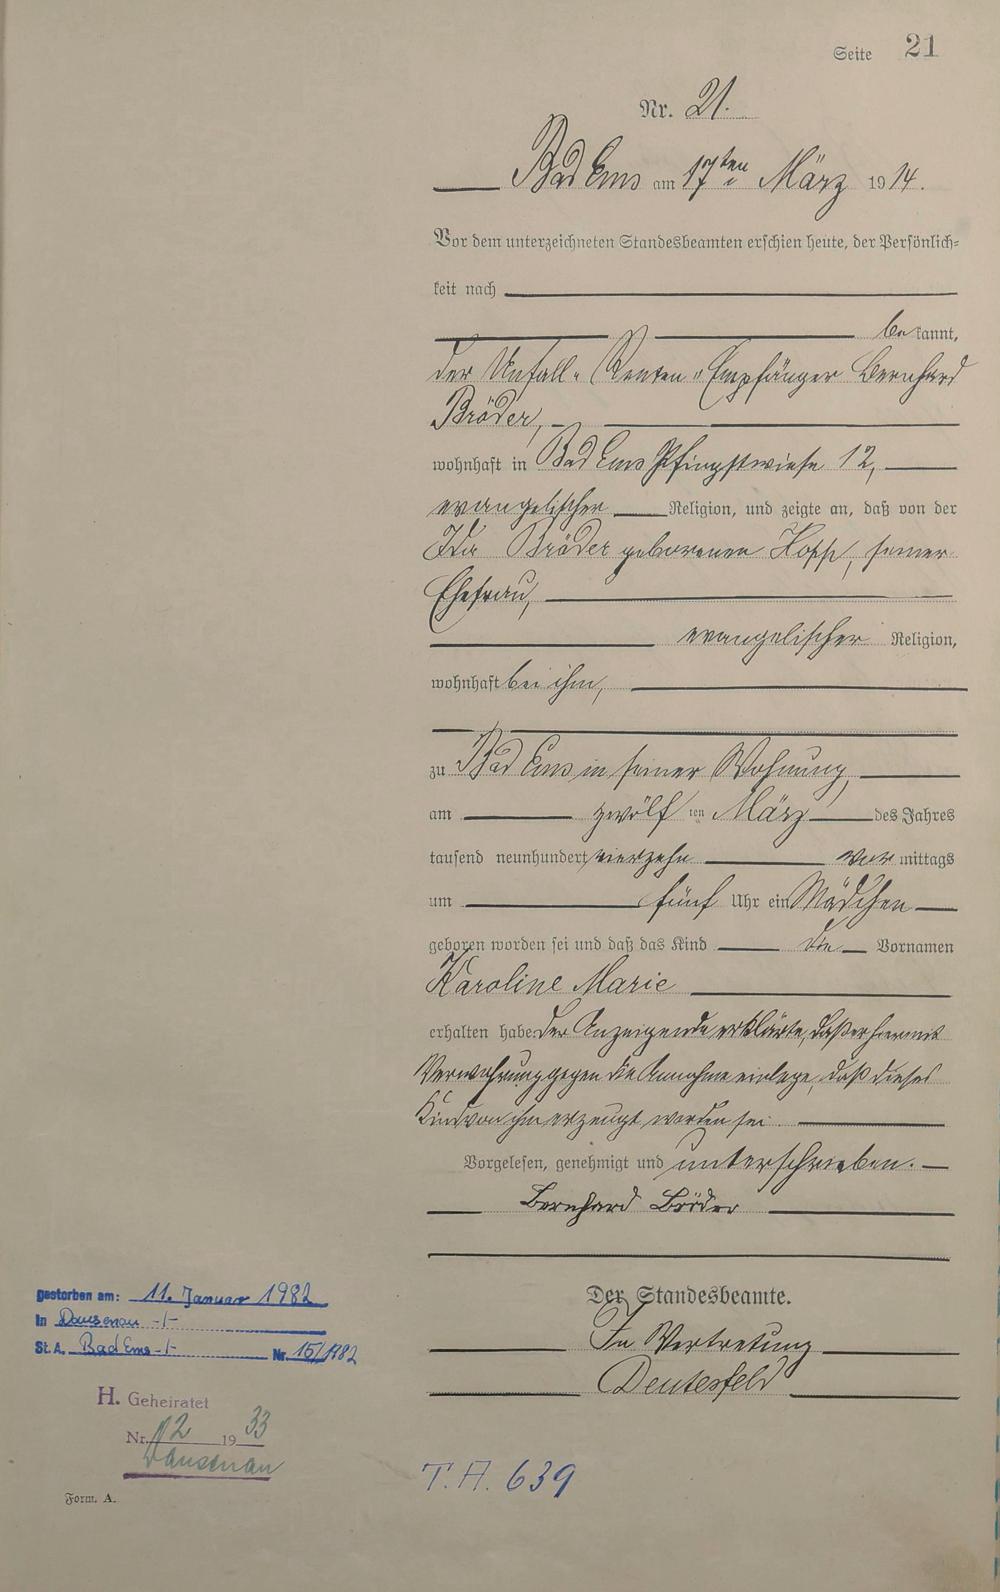 Seite 21
Nr. 21.
Bad Ems am 17ten März 1914.
Vor dem unterzeichneten Standesbeamten erschien heute, der Persönlich-
keit nach
bekannt,
der Unfall-Renten-Empfänger Bernhard
Bröder,
wohnhaft in Bad Ems Pfingstwiese 12,
evangelischer Religion, und zeigte an, daß von der
Ida Bröder geborenen Hopp, seiner
Ehefrau,
evangelischer Religion,
wohnhaft bei ihm,
zu Bad Ems in seiner Wohnung,
am zwölften März des Jahres
tausend neunhundert vierzehn vormittags
um fünf Uhr ein Mädchen
geboren worden sei und daß das Kind die Vornamen
Karoline Marie
erhalten habe. Der Anzeigende erklärte, daß er hiermit
Verwahrung gegen die Annahme einlege, daß dieses
Kind von ihm erzeugt worden sei.
Vorgelesen, genehmigt und unterschrieben.
Bernhard Bröder
Der Standesbeamte.
In Vertretung
Deutesfeld
gestorben am: 11. Januar 1982
In Dausenau -/-
St.A. Bad Ems -/- Nr. 15/1982
H. Geheiratet
Nr. 12 1933
Dausenau
T.A. 639
Form. A.